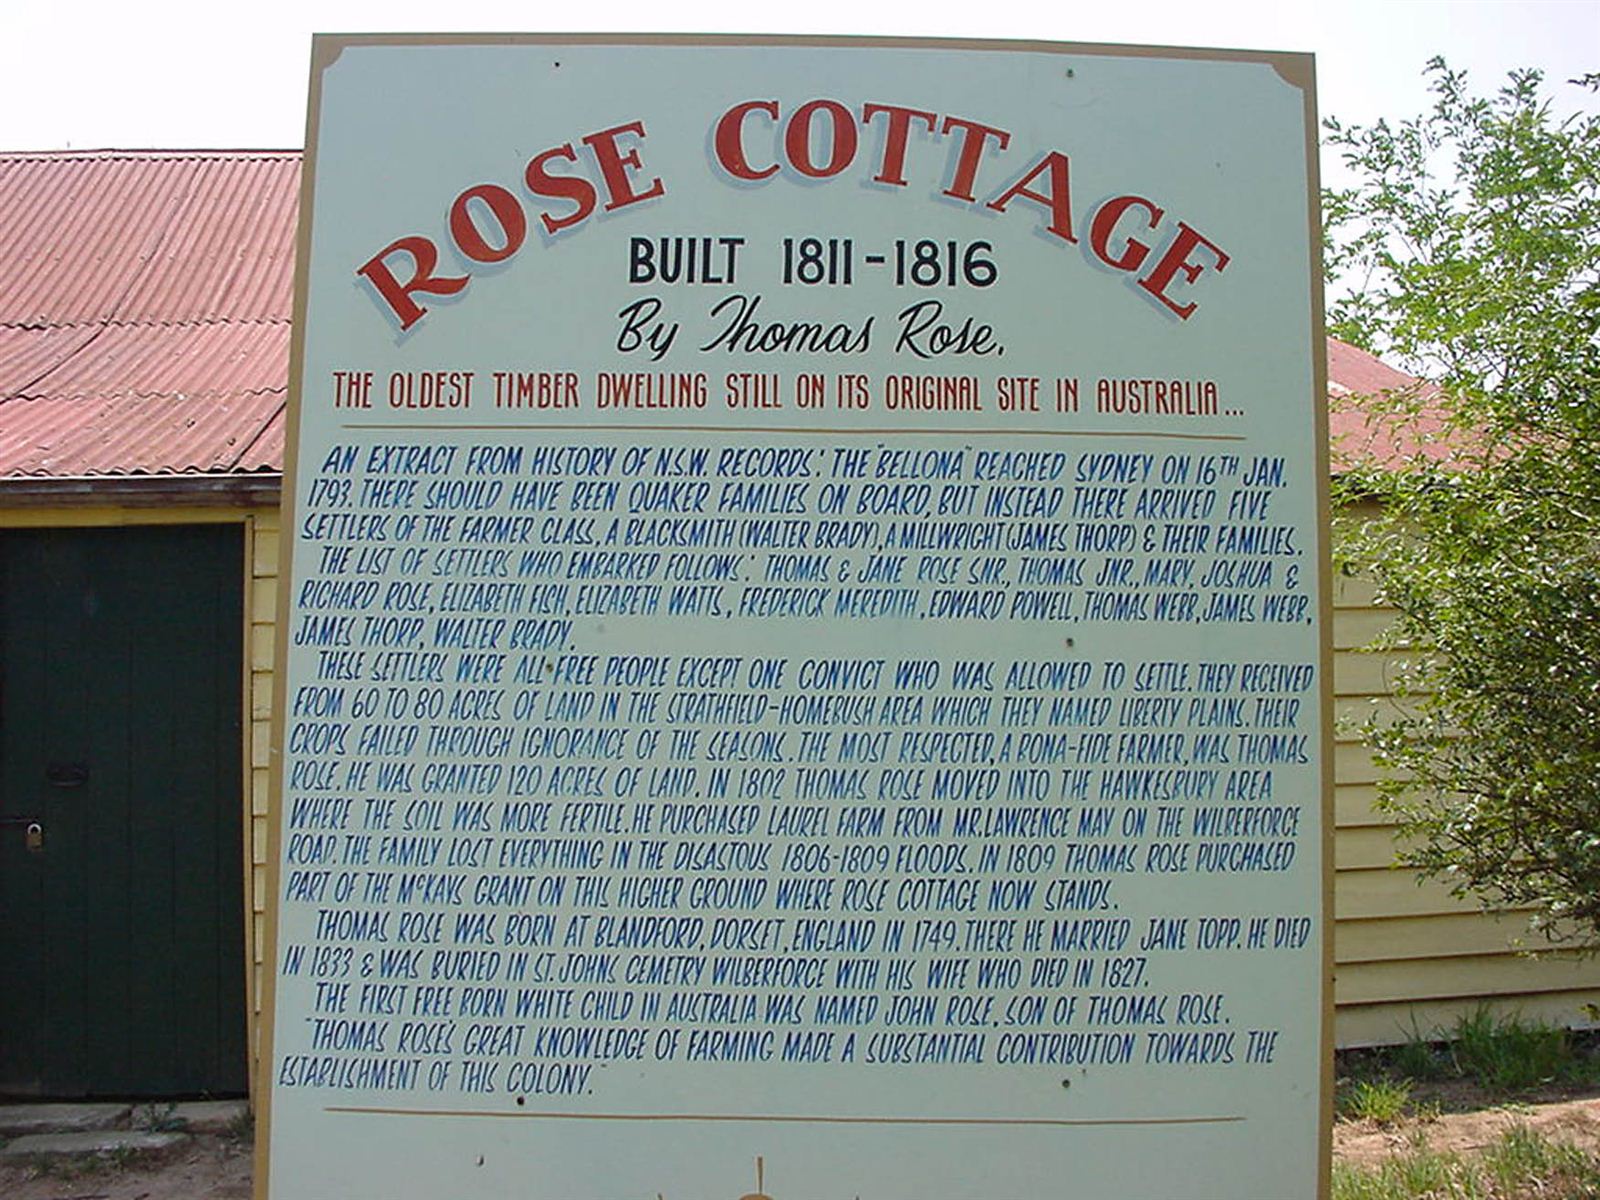 ROSE COTTAGE
BUILT 1811-1816
By Thomas Rose.
THE OLDEST TIMBER DWELLING STILL ON ITS ORIGINAL SITE IN AUSTRALIA...
AN EXTRACT FROM HISTORY OF N.S.W. RECORDS: THE "BELLONA" REACHED SYDNEY ON 16TH JAN.
1793. THERE SHOULD HAVE BEEN QUAKER FAMILIES ON BOARD, BUT INSTEAD THERE ARRIVED FIVE
SETTLERS OF THE FARMER CLASS, A BLACKSMITH (WALTER BRADY), A MILLWRIGHT (JAMES THORP) & THEIR FAMILIES.
THE LIST OF SETTLERS WHO EMBARKED FOLLOWS: THOMAS & JANE ROSE SNR., THOMAS JNR., MARY, JOSHUA &
RICHARD ROSE, ELIZABETH FISH, ELIZABETH WATTS, FREDERICK MEREDITH, EDWARD POWELL, THOMAS WEBB, JAMES WEBB,
JAMES THORP, WALTER BRADY.
THESE SETTLERS WERE ALL FREE PEOPLE EXCEPT ONE CONVICT WHO WAS ALLOWED TO SETTLE. THEY RECEIVED
FROM 60 TO 80 ACRES OF LAND IN THE STRATHFIELD-HOMEBUSH AREA WHICH THEY NAMED LIBERTY PLAINS. THEIR
CROPS FAILED THROUGH IGNORANCE OF THE SEASONS. THE MOST RESPECTED, A BONA-FIDE FARMER, WAS THOMAS
ROSE. HE WAS GRANTED 120 ACRES OF LAND. IN 1802 THOMAS ROSE MOVED INTO THE HAWKESBURY AREA
WHERE THE SOIL WAS MORE FERTILE. HE PURCHASED LAUREL FARM FROM MR. LAWRENCE MAY ON THE WILBERFORCE
ROAD. THE FAMILY LOST EVERYTHING IN THE DISASTOUS 1806-1809 FLOODS. IN 1809 THOMAS ROSE PURCHASED
PART OF THE McKAYS GRANT ON THIS HIGHER GROUND WHERE ROSE COTTAGE NOW STANDS.
THOMAS ROSE WAS BORN AT BLANDFORD, DORSET, ENGLAND IN 1749. THERE HE MARRIED JANE TOPP. HE DIED
IN 1833 & WAS BURIED IN ST. JOHNS CEMETRY WILBERFORCE WITH HIS WIFE WHO DIED IN 1827.
THE FIRST FREE BORN WHITE CHILD IN AUSTRALIA WAS NAMED JOHN ROSE, SON OF THOMAS ROSE.
"THOMAS ROSE'S GREAT KNOWLEDGE OF FARMING MADE A SUBSTANTIAL CONTRIBUTION TOWARDS THE
ESTABLISHMENT OF THIS COLONY."